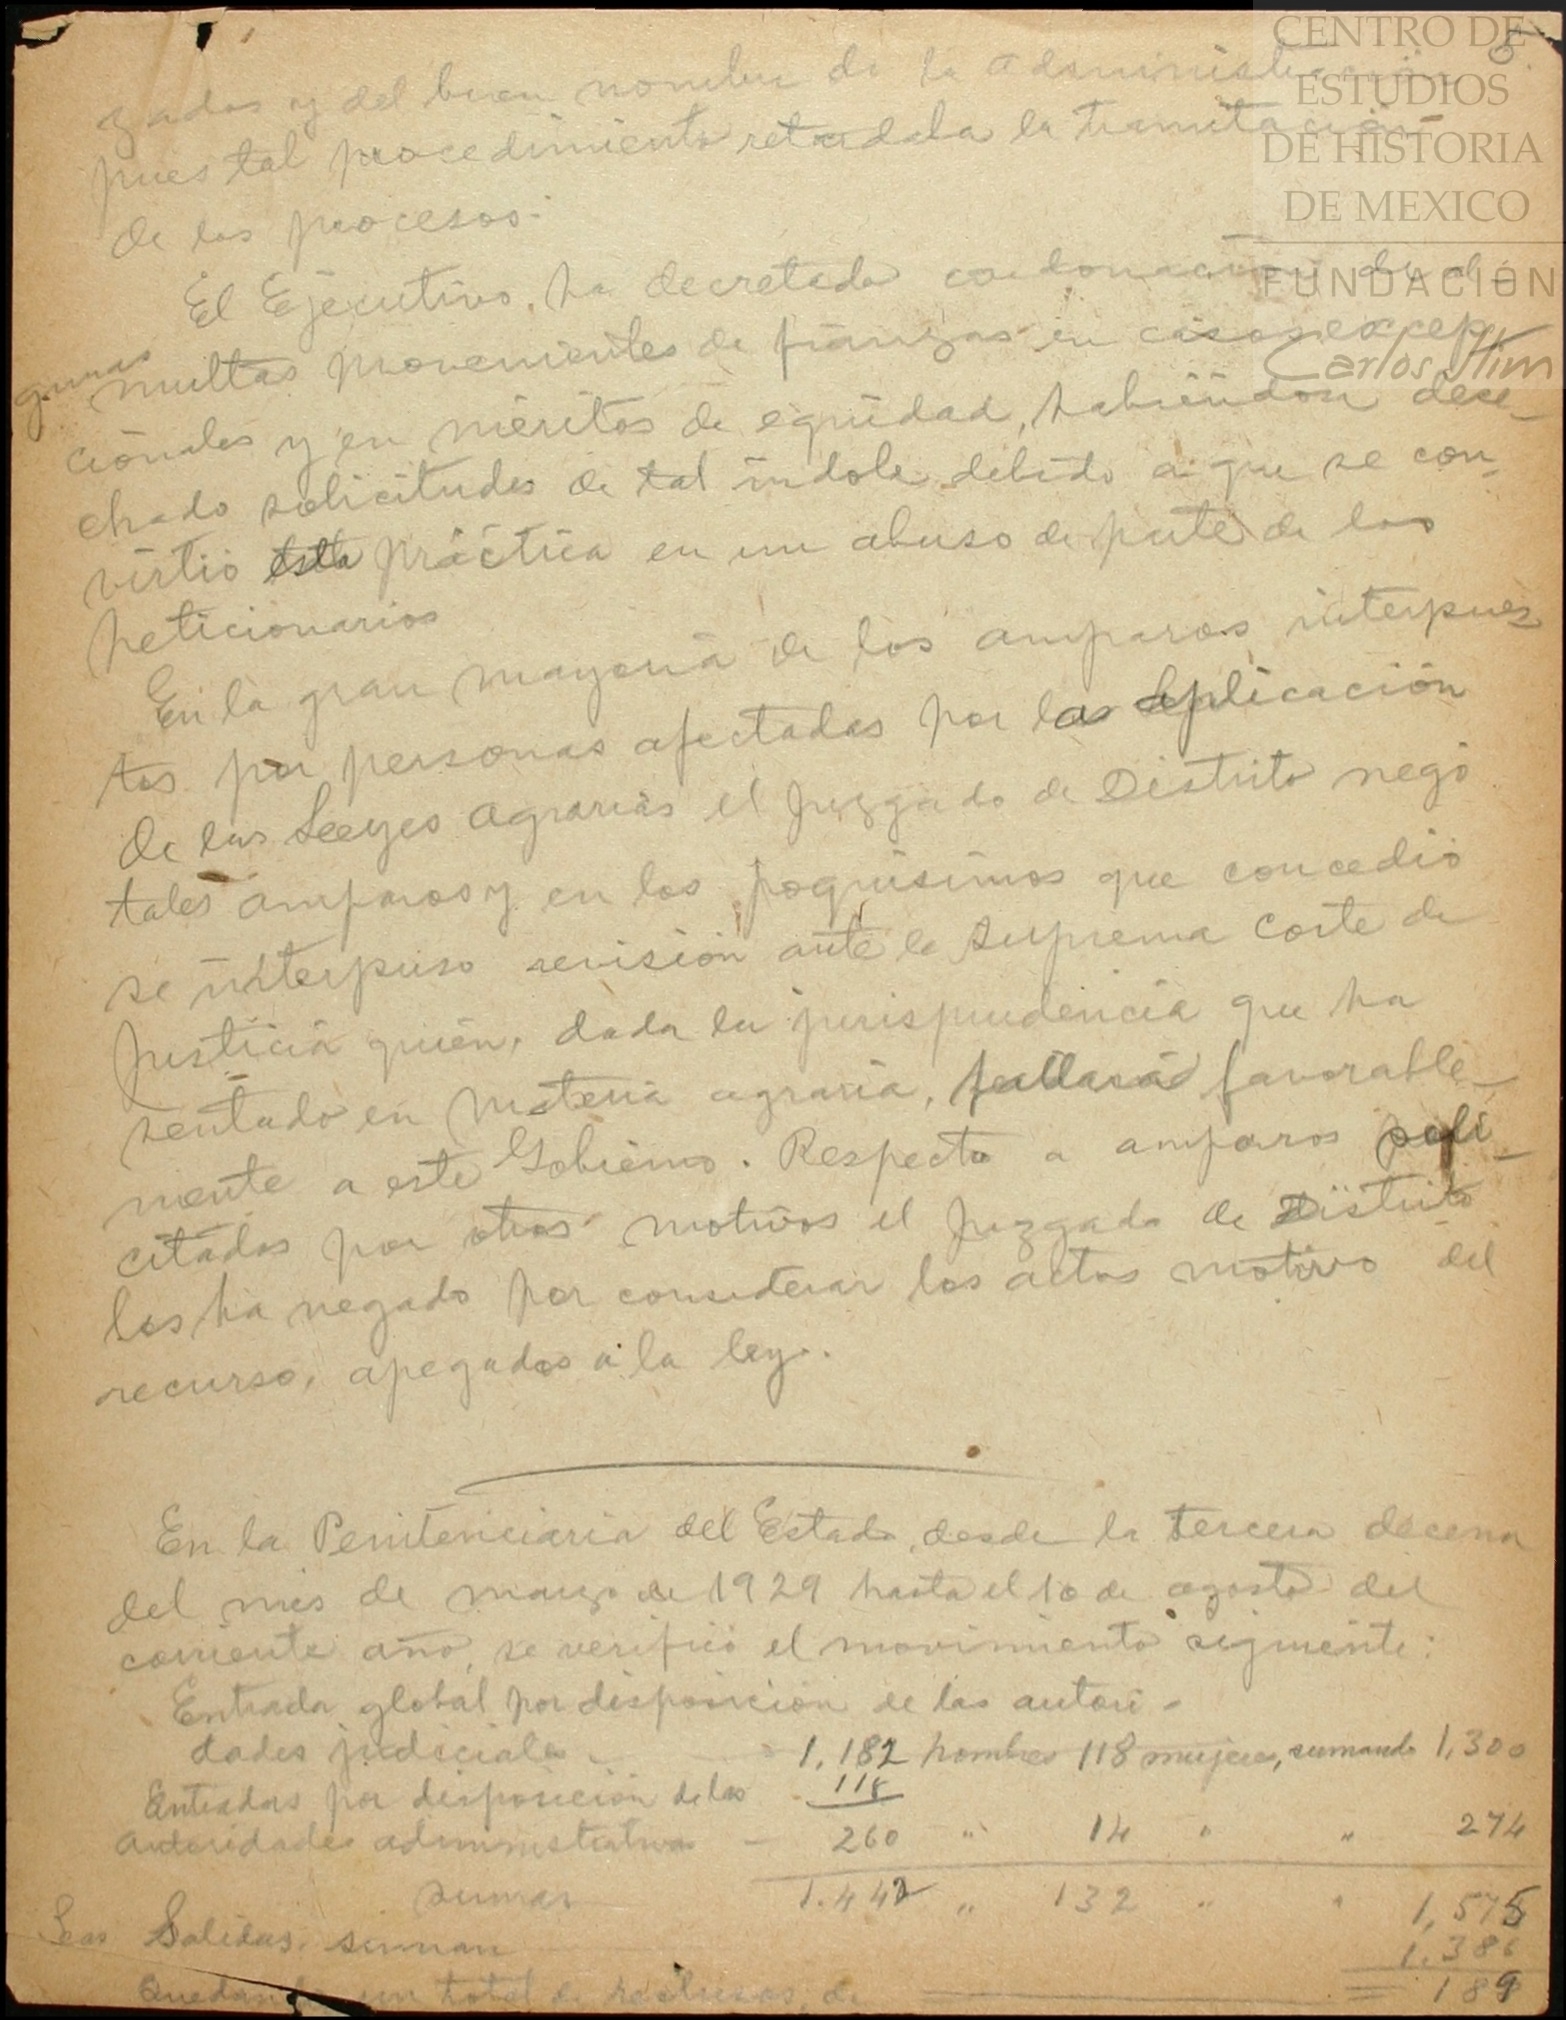 CENTRO DE
ESTUDIOS
DE HISTORIA
DE MEXICO
FUNDACIÓN
Carlos Slim
zadas y del buen nombre de la administración
pues tal procedimiento retardaba la tramitación
de los procesos.
El Ejecutivo, ha decretado condonación de al-
gunas multas provenientes de fianzas en casos excep
cionales y en méritos de equidad, habiendose dese-
chado solicitudes de tal indole debido a que se con-
virtió esta práctica en un abuso de parte de los
peticionarios
En la gran mayoria de los amparos interpues
tos por personas afectadas por la aplicación
de las Leeyes agrarias el juzgado de Distrito negó
tales amparos y en los poquisimos que concedió
se interpuso revisión ante la Suprema Corte de
Justicia quien, dada la jurisprudencia que ha
sentado en materia agraria, fallará favorable-
mente a este Gobierno. Respecto a amparos soli-
citados por otros motivos el juzgado de Distrito
los ha negado por considerar los actos motivo del
recurso, apegados a la ley.
En la Penitenciaria del Estado, desde la tercera decena
del mes de marzo de 1929 hasta el 10 de agosto del
corriente año, se verificó el movimiento siguiente:
Entrada global por disposición de las autori-
dades judiciales - 1,182 hombres 118 mujeres, sumando 1,300
118
Entradas por disposición de las
autoridades administrativas - 260 " 14 " " 274
sumas 1.442 " 132 " " 1,575
Las Salidas suman 1.386
Quedando un total de reclusos, de = 189